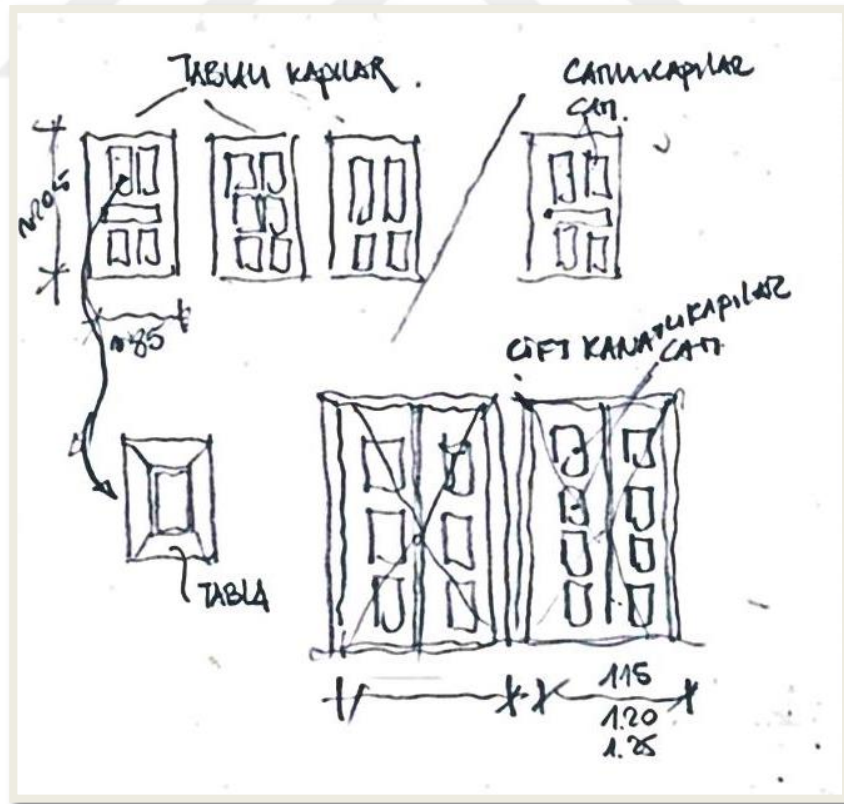 TABLALI KAPILAR.
CAMLI KAPILAR
CAM.
~205
~85
ÇİFT KANATLI KAPILAR
CAM
TABLA
115
1.20
1.25